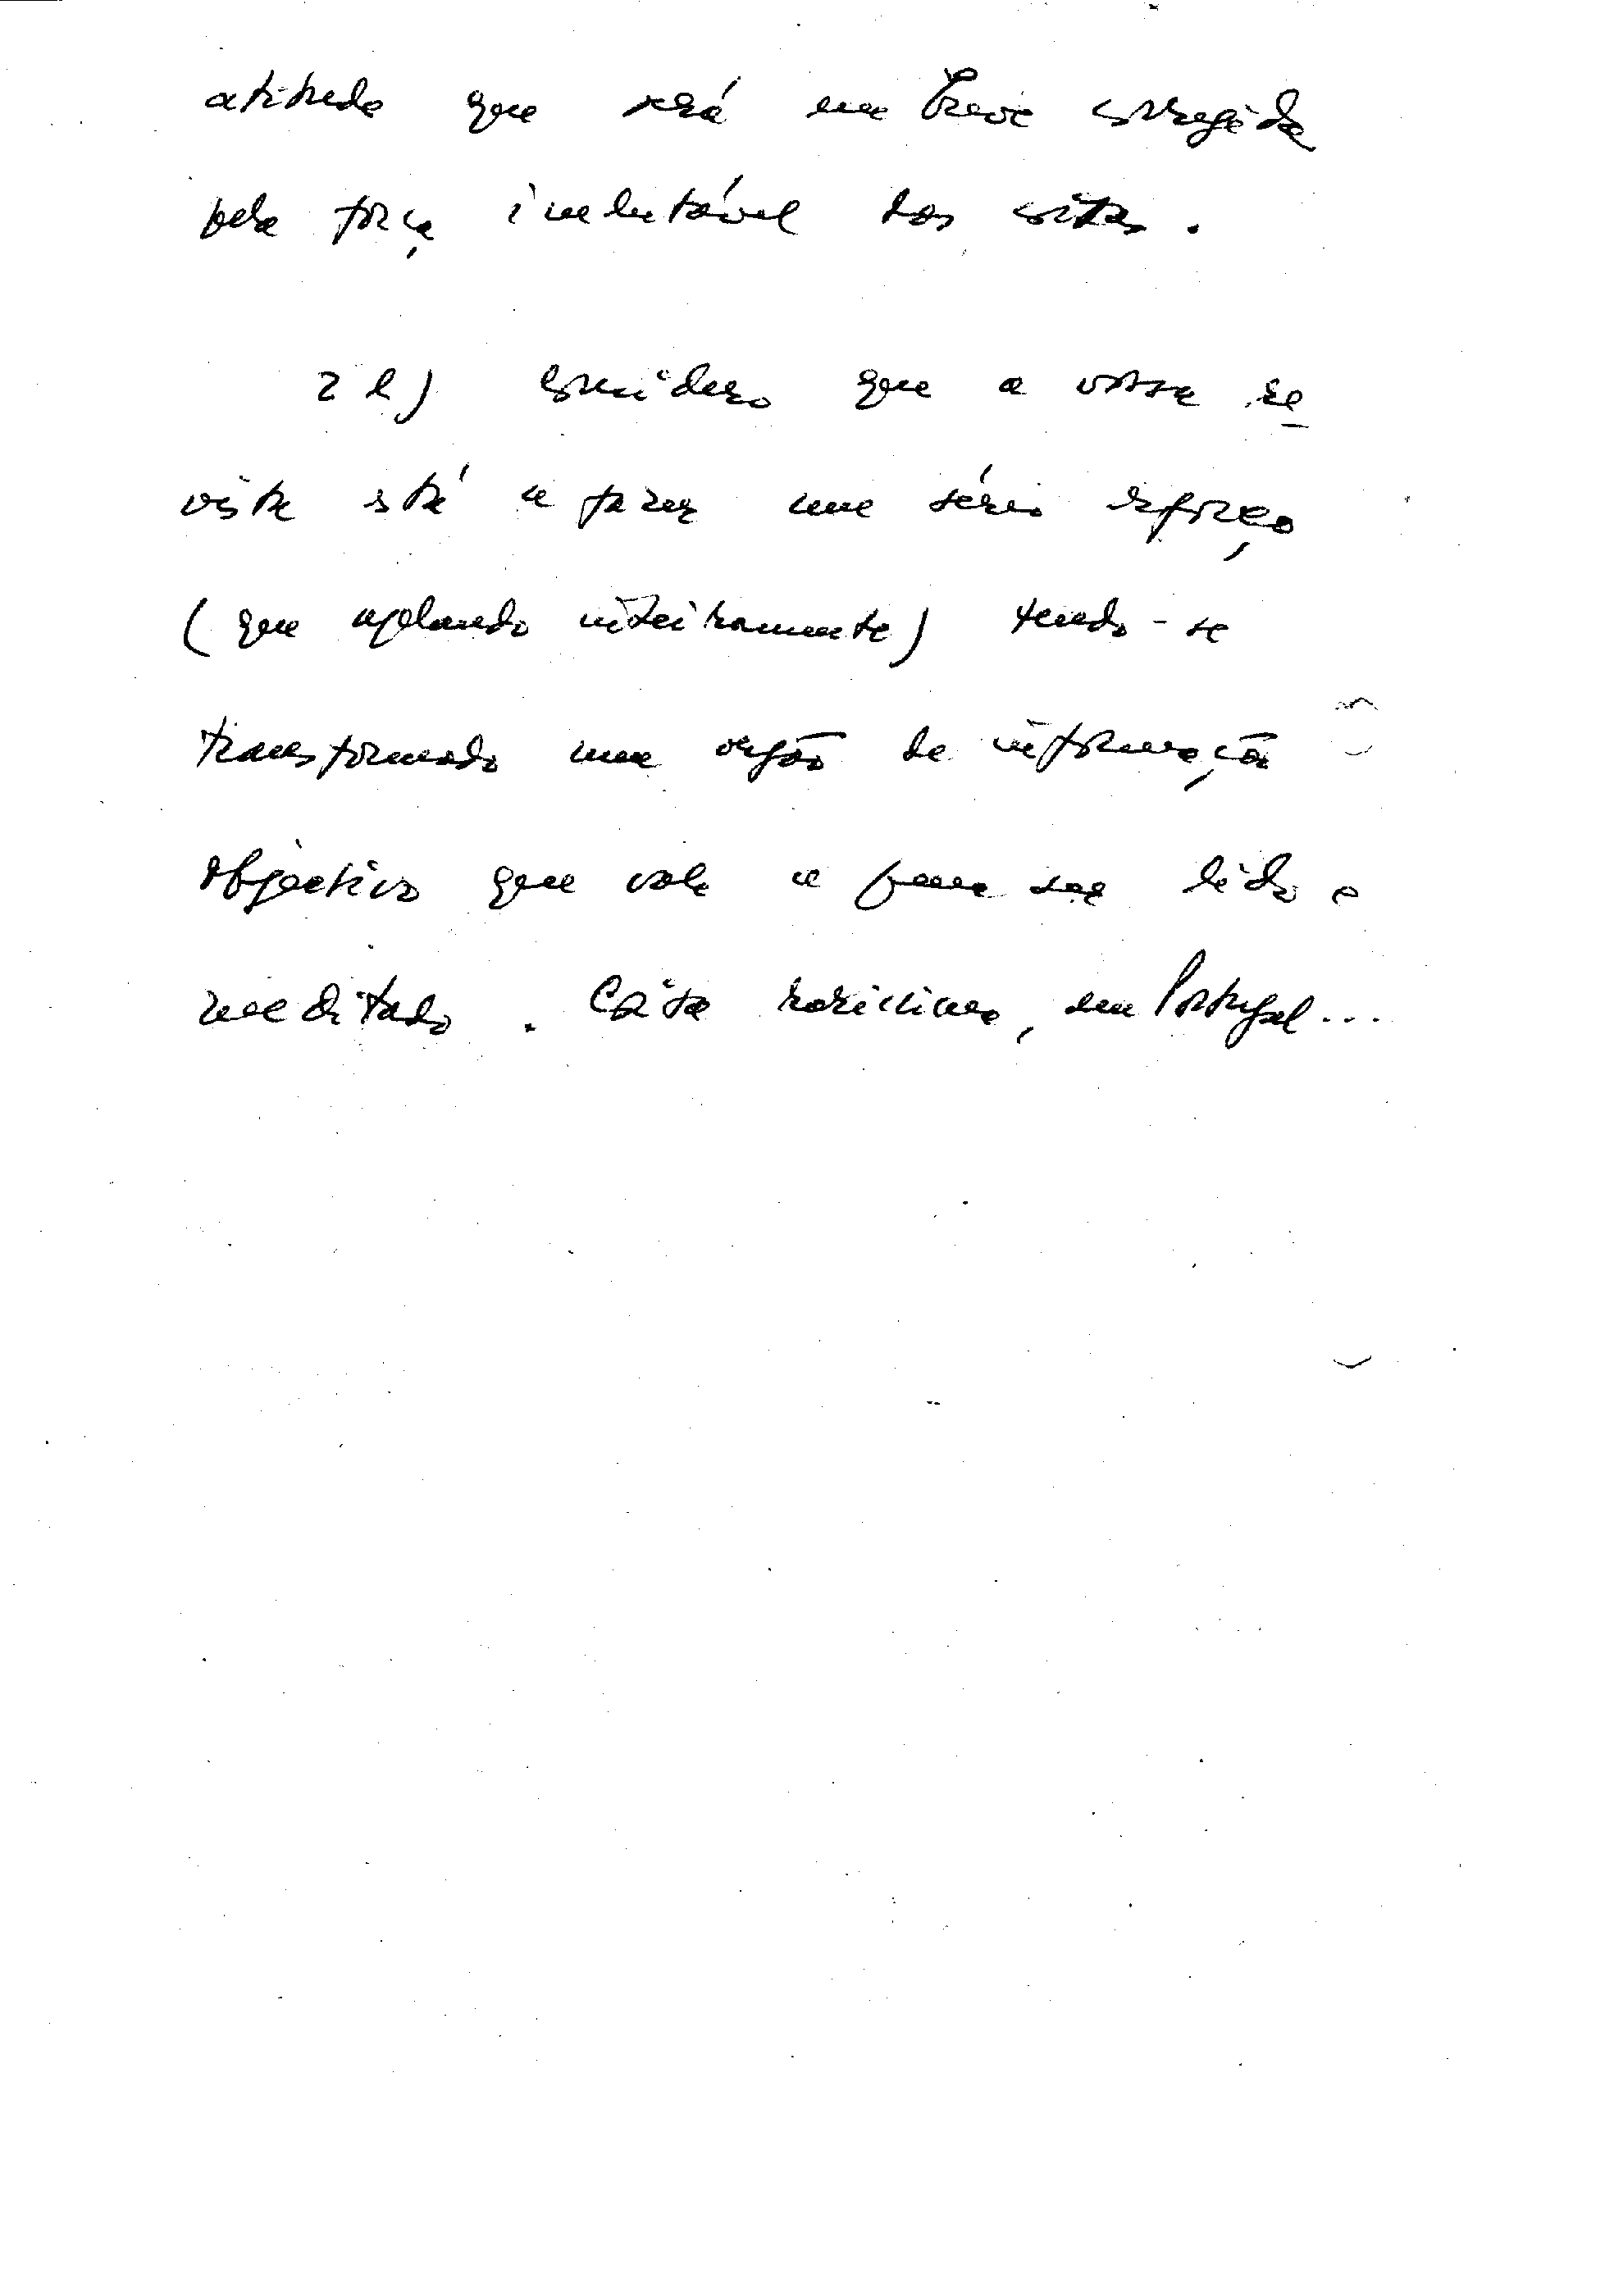 atitude que será em breve corrigida
pela força inelutável das coisas.
2 e) Considero que a vossa re
vista está a fazer um sério esforço
(que aplaudo inteiramente) tendo-se
transformado num orgão de informação
objectivo que vale a pena ser lido e
meditado. Coisa raríssima, em Portugal...